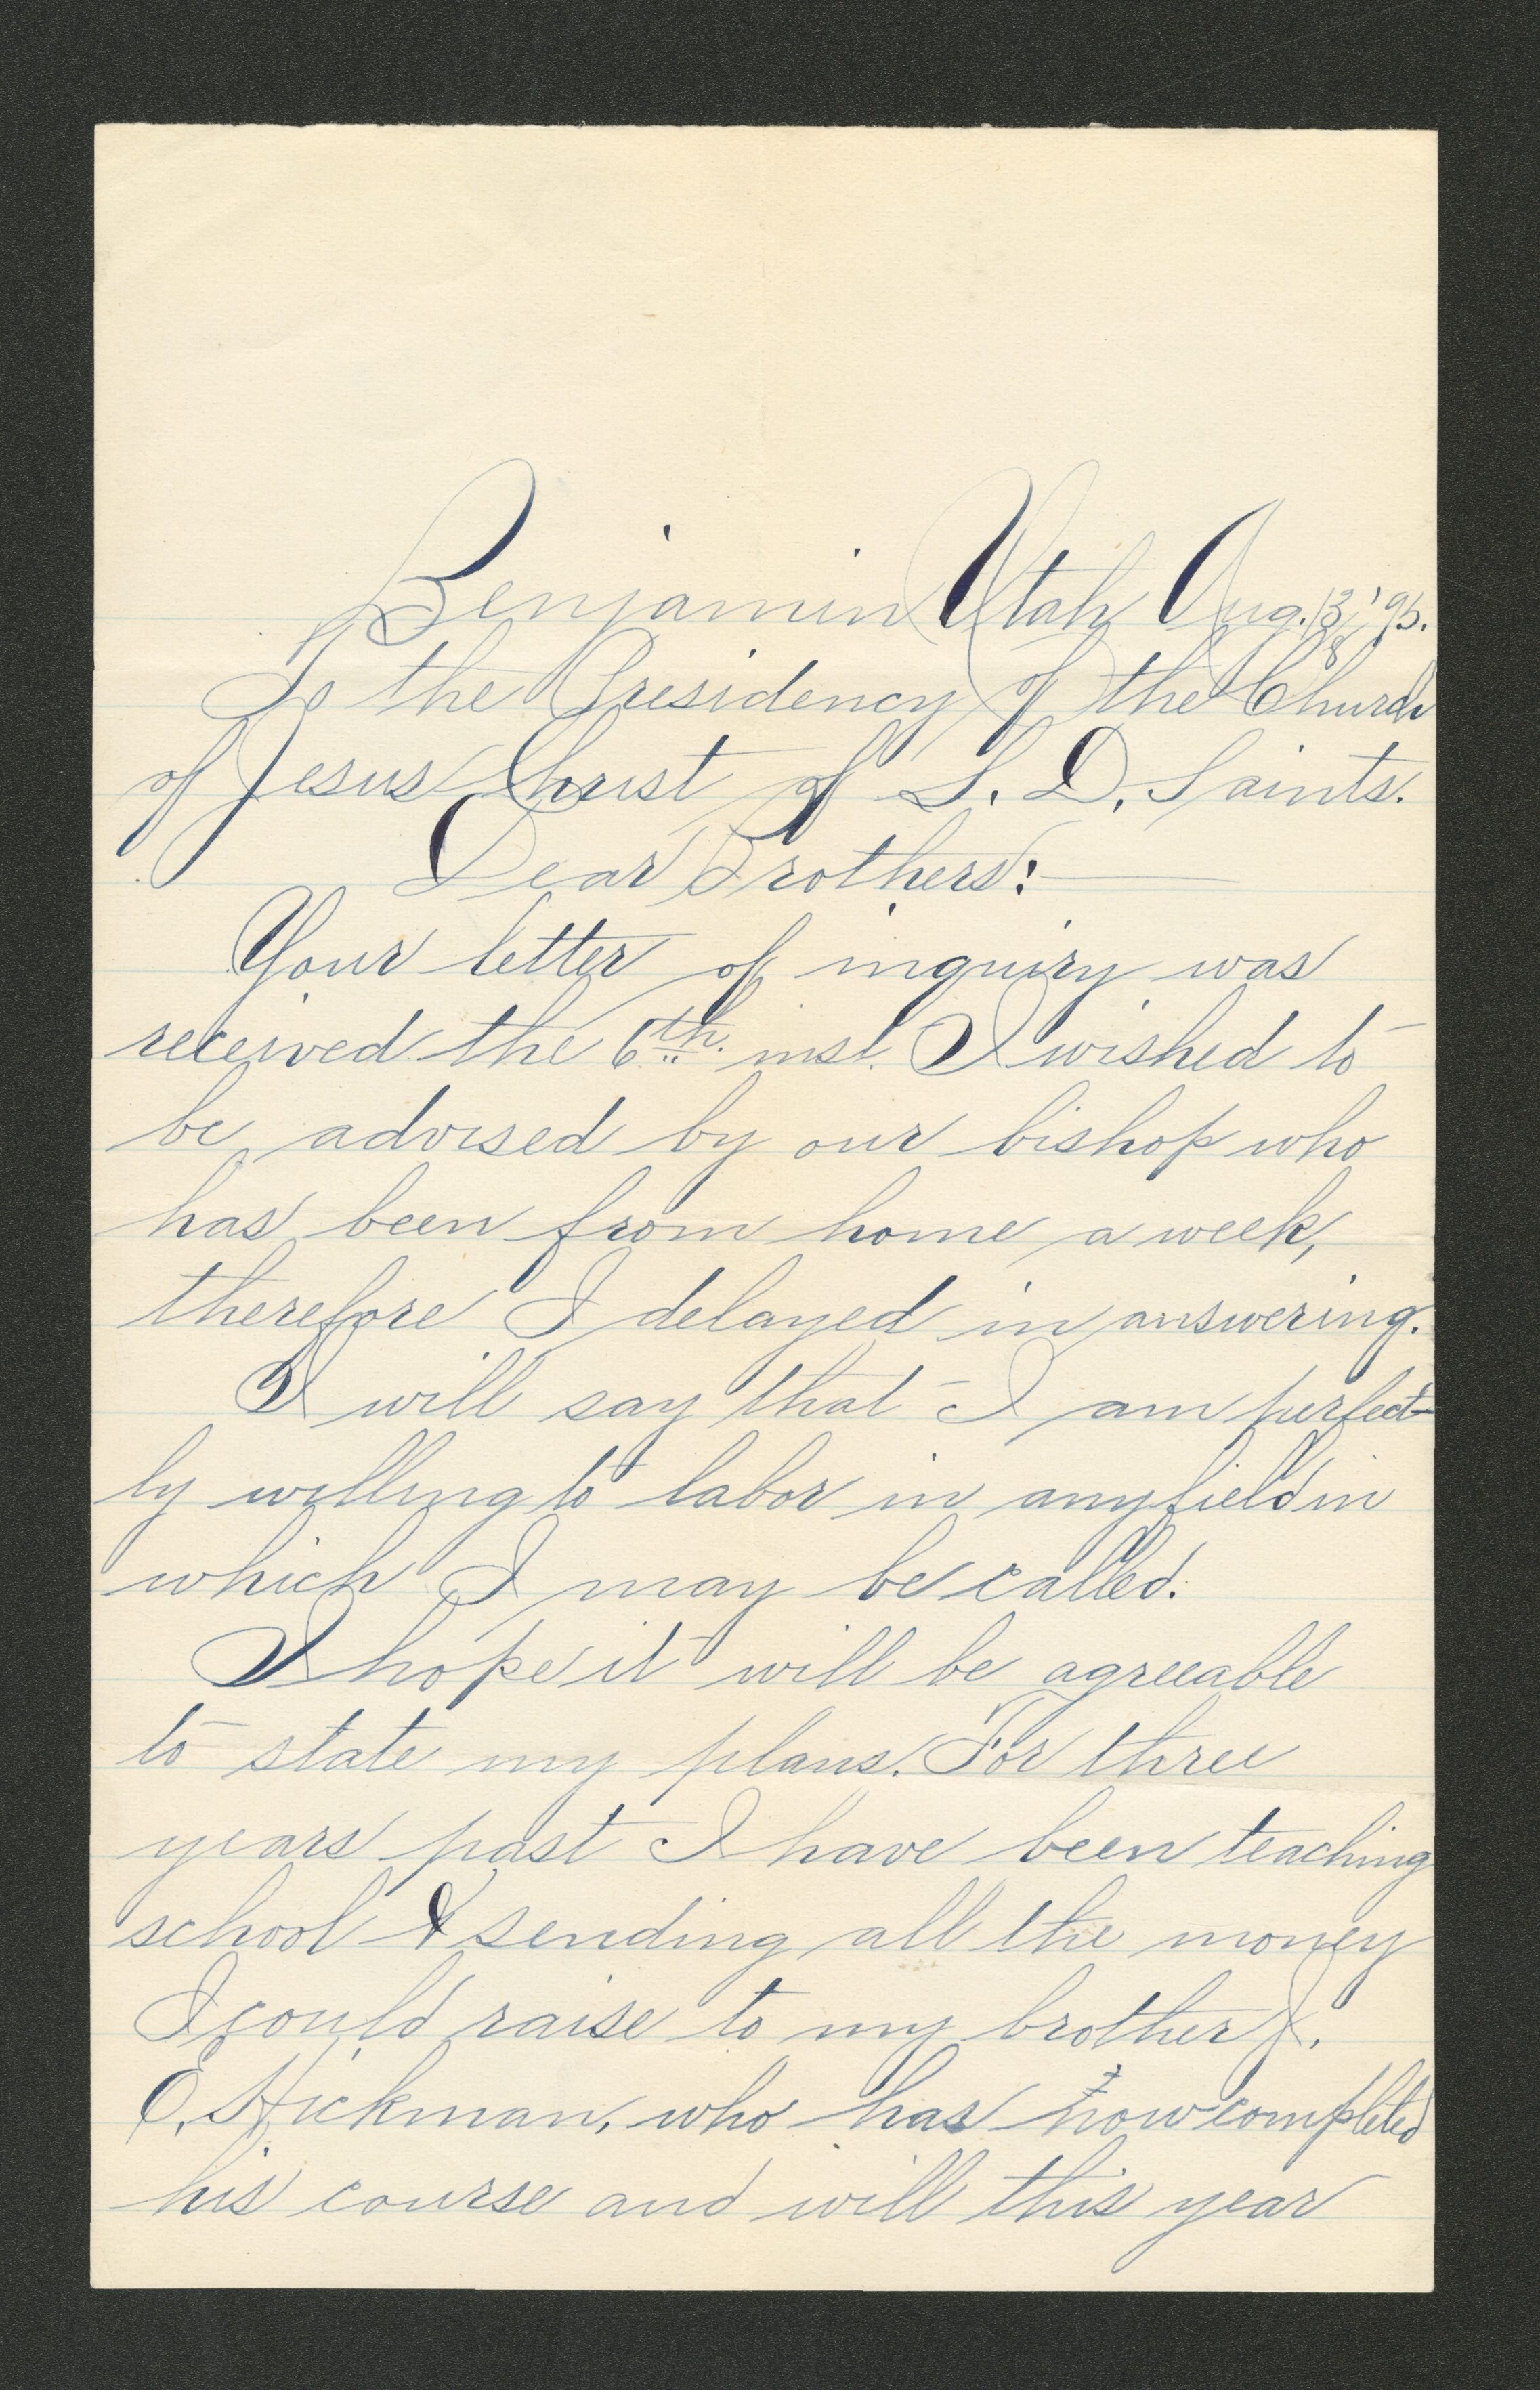 Benjamin Utah Aug. 13, '95.
8
To the Presidency of the Church
of Jesus Christ of L. D. Saints.
Dear Brothers:
Your letter of inquiry was
received the 6th. inst. I wished to
be advised by our bishop who
has been from home a week,
therefore I delayed in answering.
I will say that I am perfect-
ly willing to labor in any field in
which I may be called.
I hope it will be agreeable
to state my plans. For three
years past I have been teaching
school & sending all the money
I could raise to my brother J.
E. Hickman, who has now completed
his course and will this year